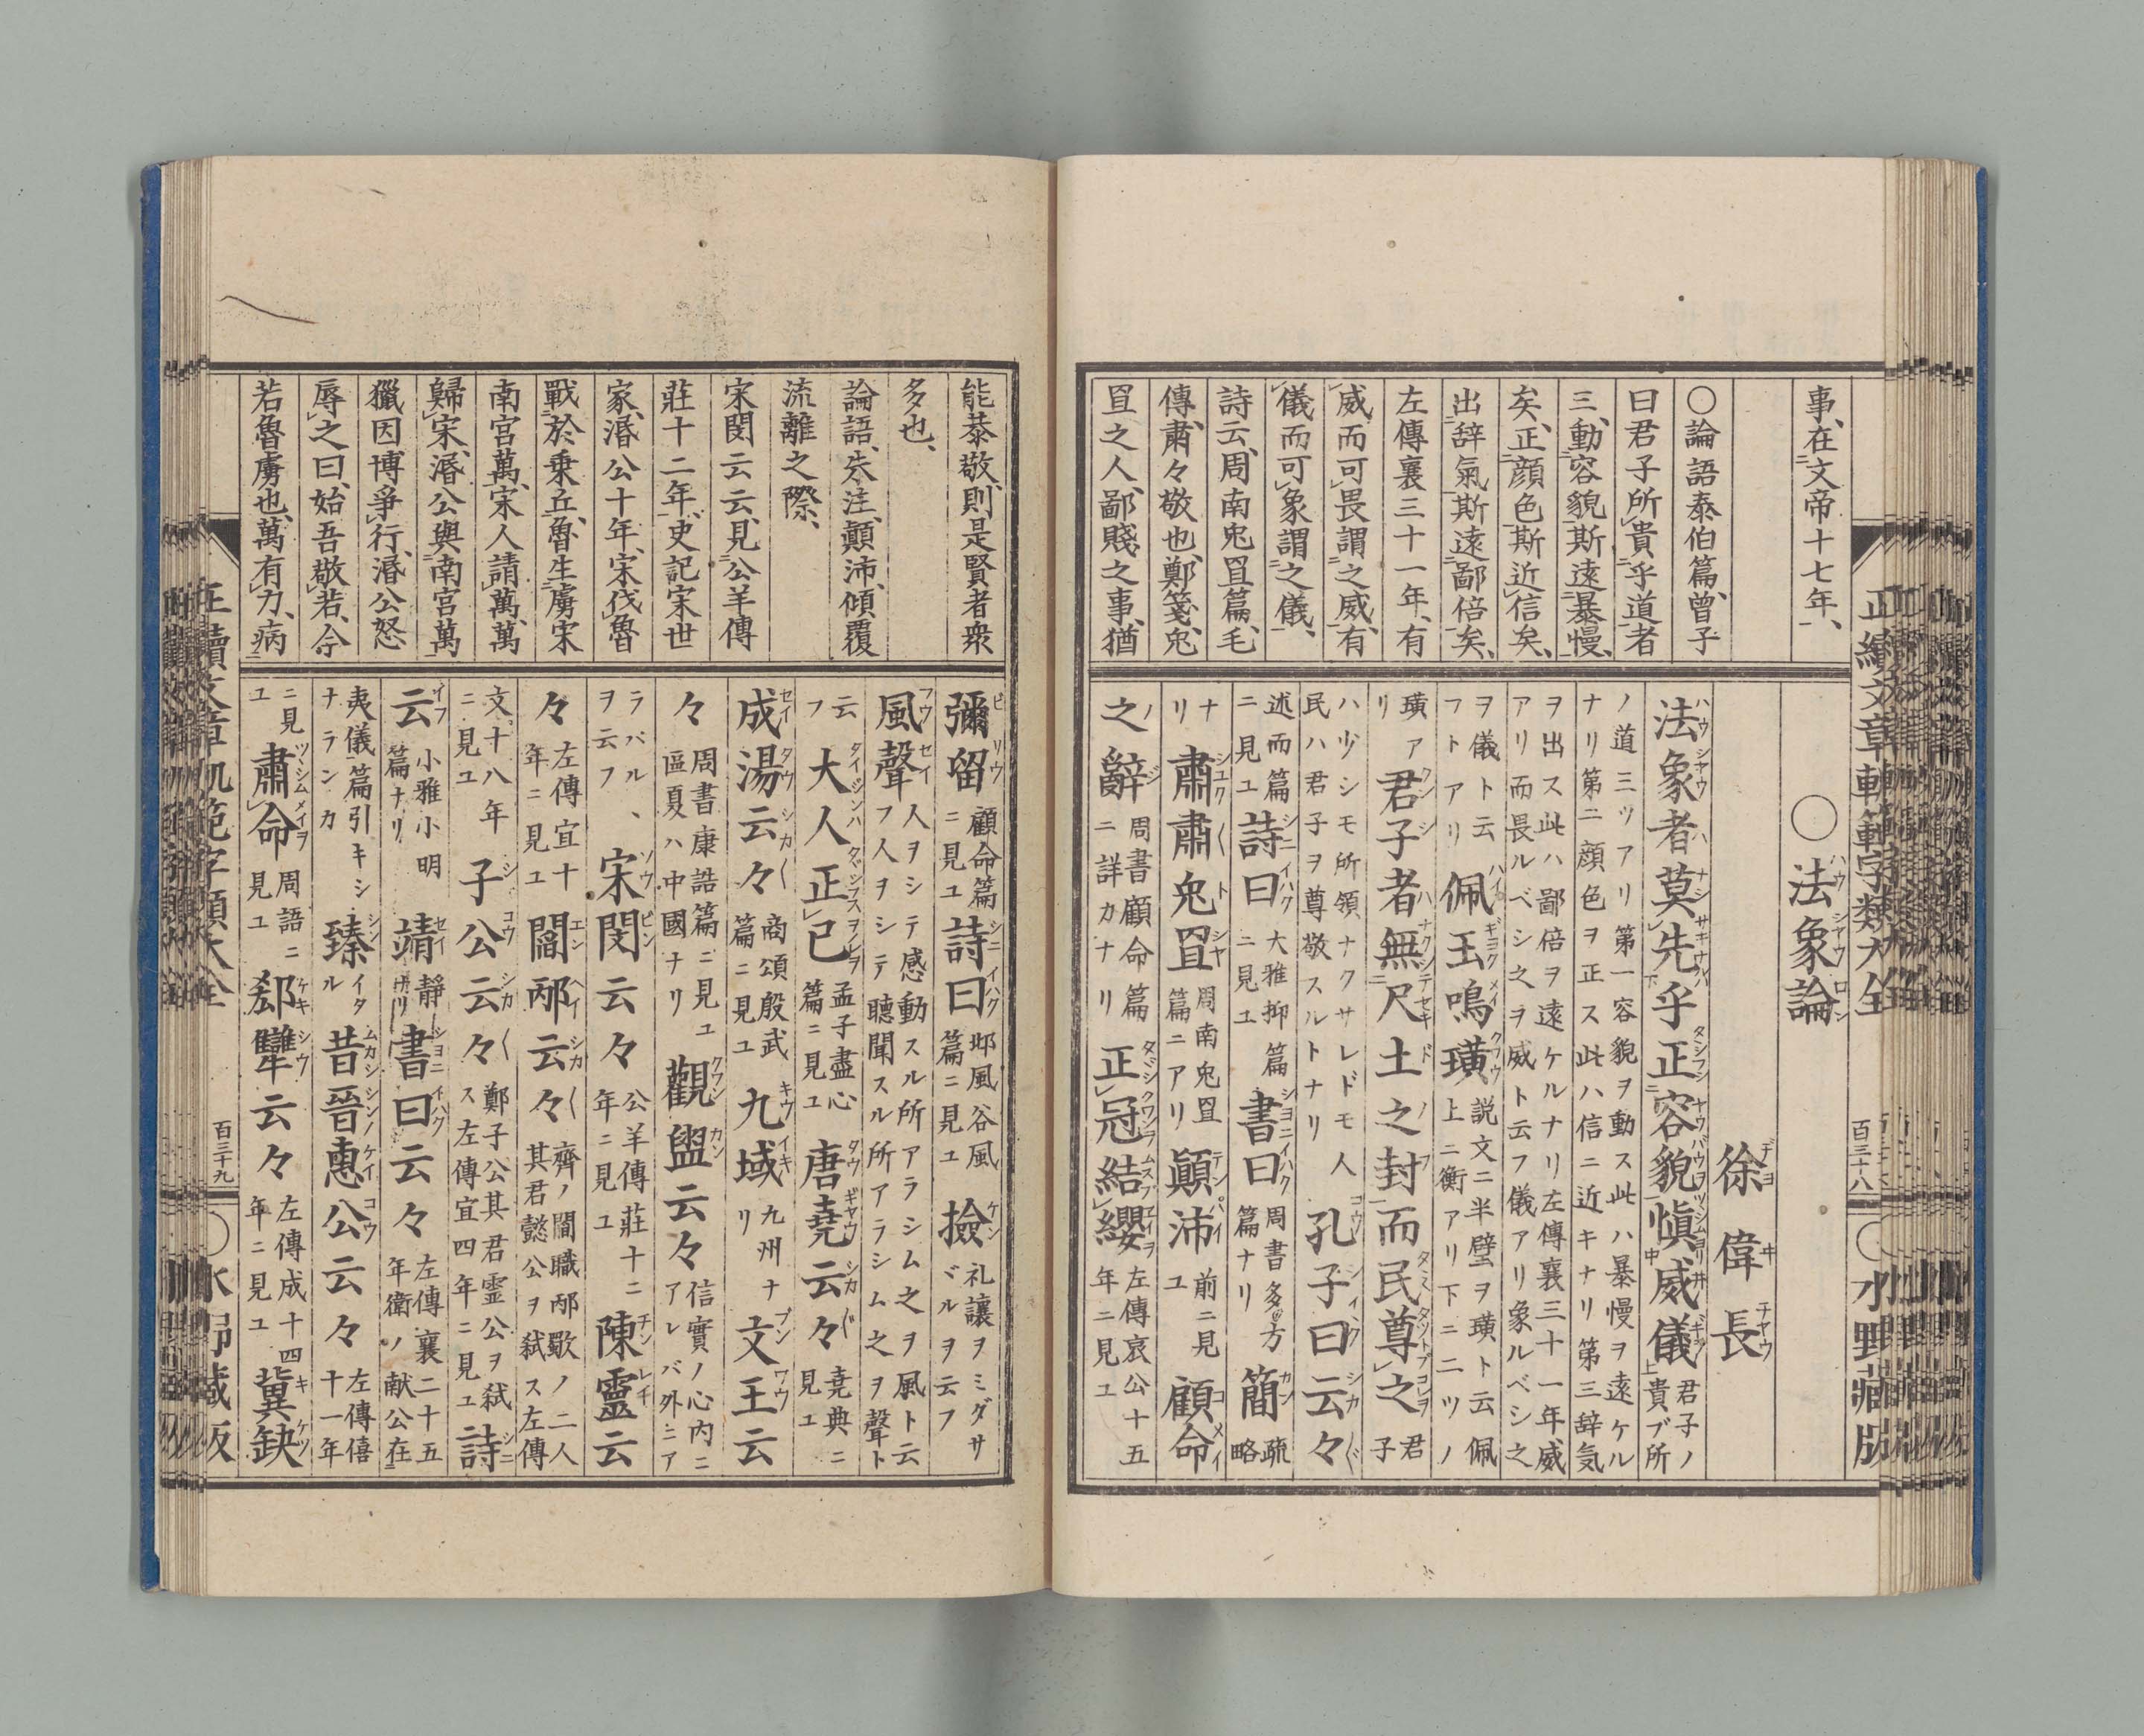 正續文章軌範字類大全
百三十八
水野藏版
事、在文帝十七年、
○論語泰伯篇、曾子
曰君子所貴乎道者
三、動容貌斯遠暴慢、
矣、正顔色斯近信矣、
出辞氣斯遠鄙倍矣、
左傳襄三十一年、有
威、而可畏謂之威、有
儀而可象謂之儀、
詩云、周南兎罝篇、毛
傳、肅々敬也、鄭箋、兎
罝之人、鄙賤之事、猶
○法象論
ハウシヤウロン
徐偉長
ヂヨヰチヤウ
法象者莫先乎正容貌愼威儀 君子ノ貴ブ所
ノ道三ツアリ第一容貌ヲ動ス此ハ暴慢ヲ遠ケル
ナリ第二顔色ヲ正ス此ハ信ニ近キナリ第三辞気
ヲ出ス此ハ鄙倍ヲ遠ケルナリ左傳襄三十一年威
アリ而畏ルベシ之ヲ威ト云フ儀アリ象ルベシ之
ヲ儀ト云フトアリ 佩玉鳴璜 説文ニ半璧ヲ璜ト云佩上ニ衡アリ下ニ二ツノ
璜アリ 君子者無尺土之封而民尊之 君子
ハ少シモ所領ナクサレドモ人民ハ君子ヲ尊敬スルトナリ 孔子曰云々
述而篇ニ見ユ 詩曰 大雅抑篇ニ見ユ 書曰 周書多方篇ナリ 簡 疏略
ナリ 肅肅兎罝 周南兎罝篇ニアリ 顚沛 前ニ見ユ 顧命
之辭 周書顧命篇ニ詳カナリ 正冠結纓 左傳哀公十五年ニ見ユ
能恭敬、則是賢者衆
多也、
論語、朱注、顚沛、傾覆
流離之際、
宋閔云云、見公羊傳
莊十二年、史記宋世
家、湣公十年、宋伐魯
戰於乗丘、魯生虜宋
南宮萬、宋人請萬、萬
歸宋、湣公與南宮萬
獵因博爭行、湣公怒
辱之曰、始吾敬若、今
若魯虜也、萬有力、病
彌留 顧命篇ニ見ユ 詩曰 邶風谷風篇ニ見ユ 撿 礼讓ヲミダサヾルヲ云フ
風聲 人ヲシテ感動スル所アラシム之ヲ風ト云フ人ヲシテ聽聞スル所アラシム之ヲ聲ト
云フ 大人正已 孟子盡心篇ニ見ユ 唐堯云々 堯典ニ見ユ
成湯云々 商頌殷武篇ニ見ユ 九域 九州ナリ 文王云
々 周書康誥篇ニ見ユ區夏ハ中國ナリ 觀盥云々 信實ノ心内ニアレバ外ニア
ラバルヽヲ云フ 宋閔云々 公羊傳莊十二年ニ見ユ 陳靈云
々 左傳宣十年ニ見ユ 閻邴云々 齊ノ閻職邴歜ノ二人其君懿公ヲ弑ス左傳
文十八年ニ見ユ 子公云々 鄭子公其君霊公ヲ弑ス左傳宣四年ニ見ユ 詩
云 小雅小明篇ナリ 靖 静ナリ 書曰云々 左傳襄二十五年衛ノ献公在
夷儀篇引キシナランカ 臻 イタル 昔晉惠公云々 左傳僖十一年
ニ見ユ 肅命 周語ニ見ユ 郄犫云々 左傳成十四年ニ見ユ 冀缺
百三十九